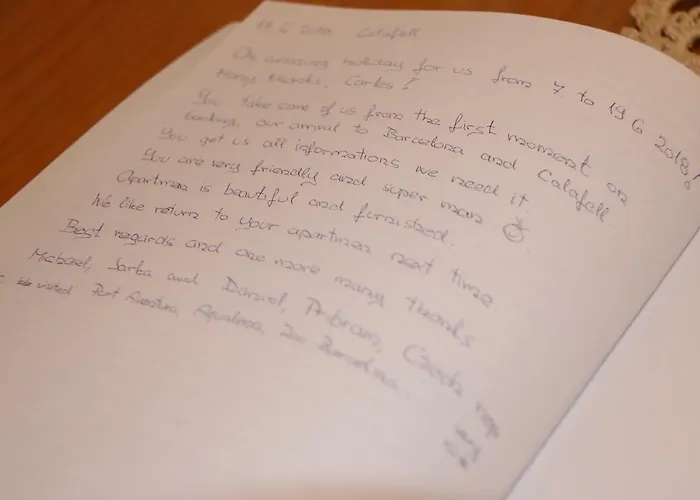 19.6.2018 Calafell
On amazing holiday for us from 7. to 19 6 2018!
Many thanks, Carlos!
You take care of us from the first moment on
booking, our arrival to Barcelona and Calafell
You get us all informations we need it.
You are very friendly and super man
Apartmen is beautiful and furnished.
We like return to your apartmen next time.
Best regards and one more many thanks
Michael, Sarka and Daniel, Pribram, Czech rep
We visited Port Aventura, Aqualeon, Zoo Barcelona.